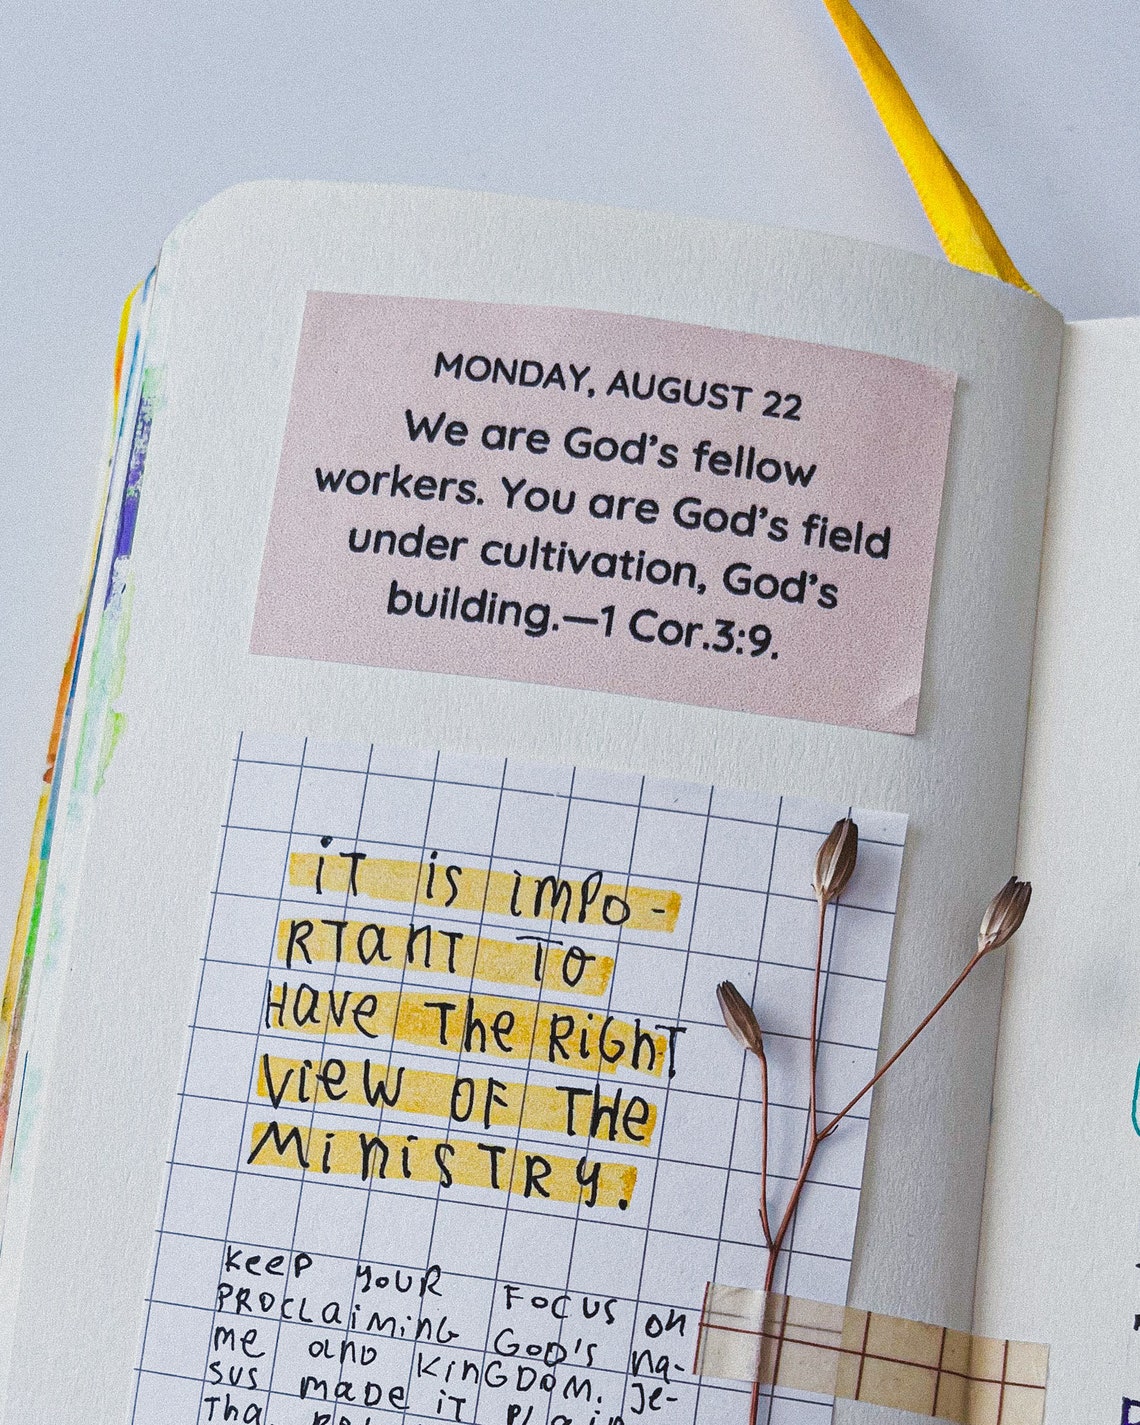 MONDAY, AUGUST 22
We are God's fellow
workers. You are God's field
under cultivation, God's
building.—1 Cor.3:9.
iT is iMPO-
RTanT TO
Have The RiGhT
View OF THe
MiniSTRY.
Keep YOUR FOCUS on
PROCLaiMinG GOD'S na-
me anD KinGDOM. Je-
sus MaDe iT PLain